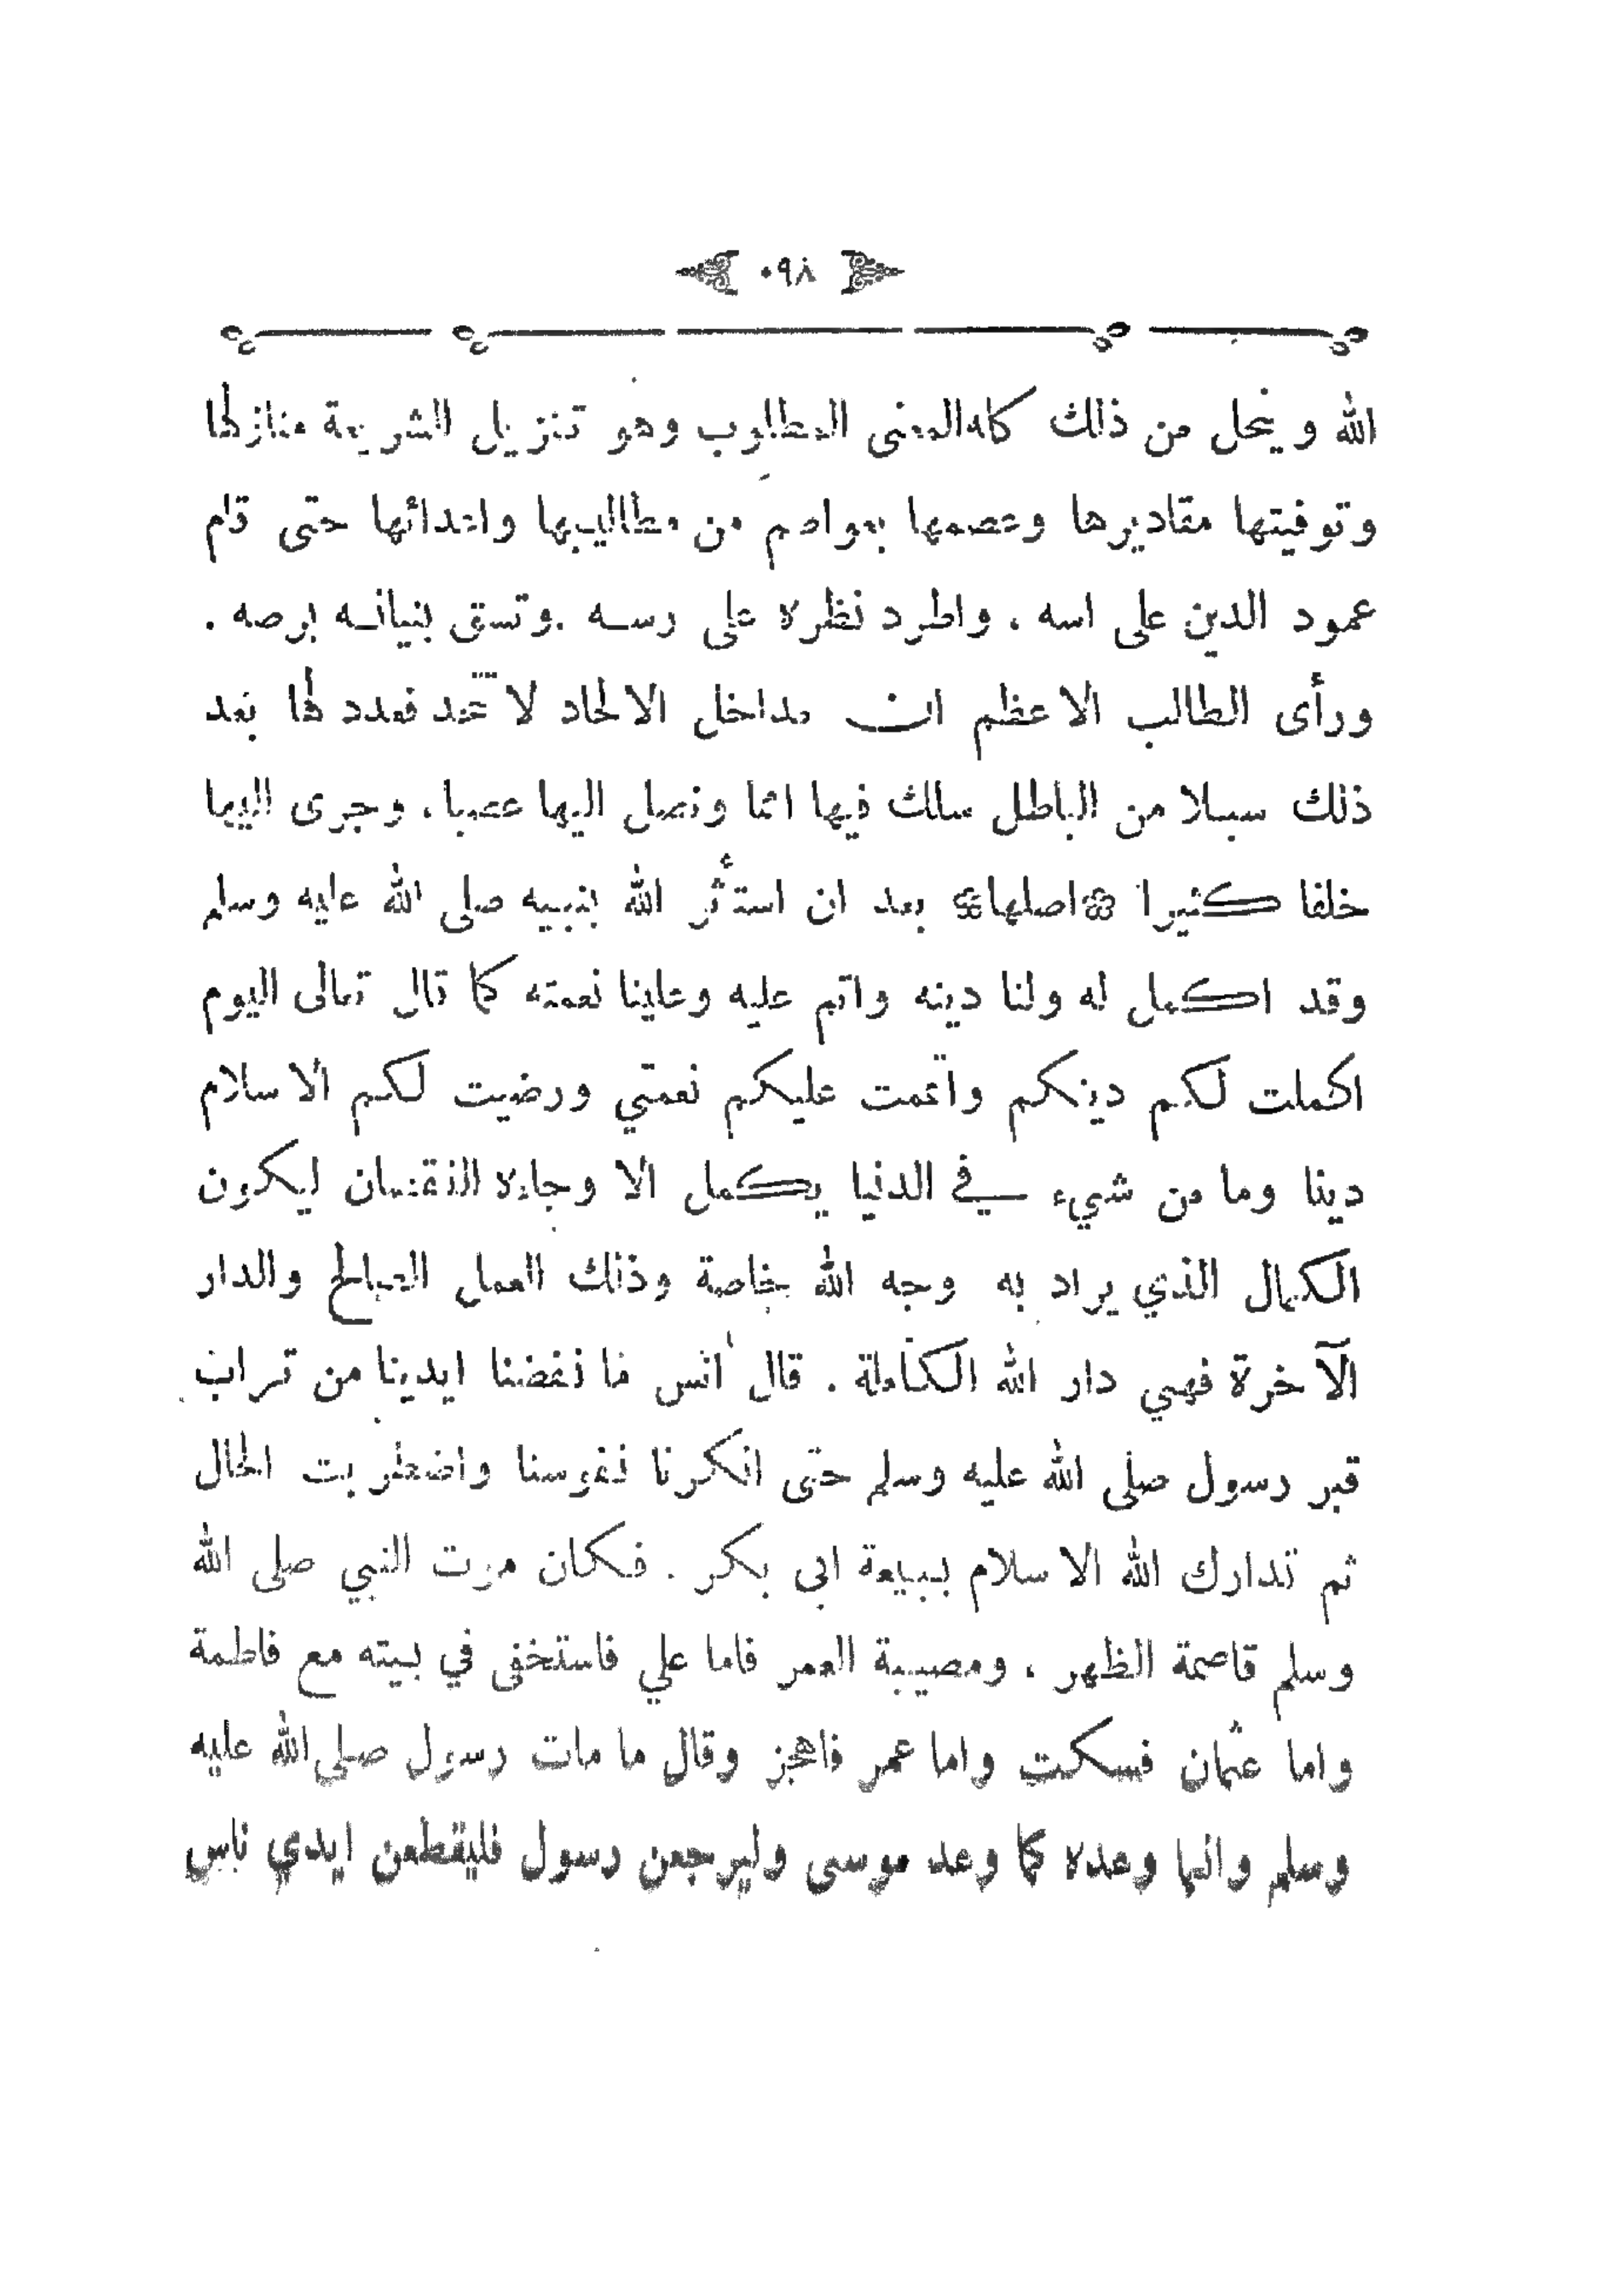 ٠٩٨
الله وينحل من ذلك كله المعنى المطلوب وهو تنزيل الشريعة منازلها
وتوفيتها مقاديرها وعصمها بعواصم من مطاليبها واعدائها حتى قام
عمود الدين على اسه ، واطرد نظره على رسمه .وتسق بنيانه برصه .
ورأى الطالب الاعظم ان مداخل الالحاد لا تتحد فعدد لها بعد
ذلك سبلا من الباطل سلك فيها اثما ونصل اليها عصبا، وجرى اليها
خلفا كثيرا ﴿اصلها﴾ بعد ان استأثر الله بنبيه صلى الله عليه وسلم
وقد اكمل له ولنا دينه واتم عليه وعلينا نعمته كما قال تعالى اليوم
اكملت لكم دينكم واتممت عليكم نعمتي ورضيت لكم الاسلام
دينا وما من شيء في الدنيا يكمل الا وجاءه النقصان ليكون
الكمال الذي يراد به وجه الله خاصة وذلك العمل الصالح والدار
الآخرة فهي دار الله الكاملة . قال انس ما نفضنا ايدينا من تراب
قبر رسول صلى الله عليه وسلم حتى انكرنا نفوسنا واضطربت الحال
ثم تدارك الله الاسلام ببيعة ابى بكر . فكان موت النبي صلى الله
وسلم قاصمة الظهر ، ومصيبة العمر فاما علي فاستخفى في بيته مع فاطمة
واما عثمان فسكت واما عمر فاهجز وقال ما مات رسول صلى الله عليه
وسلم وانما وعده كما وعد موسى وليرجعن رسول فليقطعن ايدي ناس